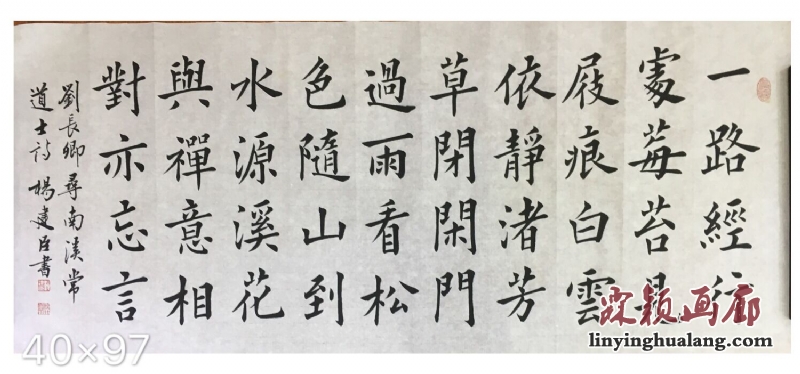 一路經行
處莓苔見
屐痕白雲
依靜渚芳
草閉閑門
過雨看松
色隨山到
水源溪花
與禪意相
對亦忘言
劉長卿尋南溪常
道士詩 楊建臣書
40×97
霖颖画廊
linyinghualang.com